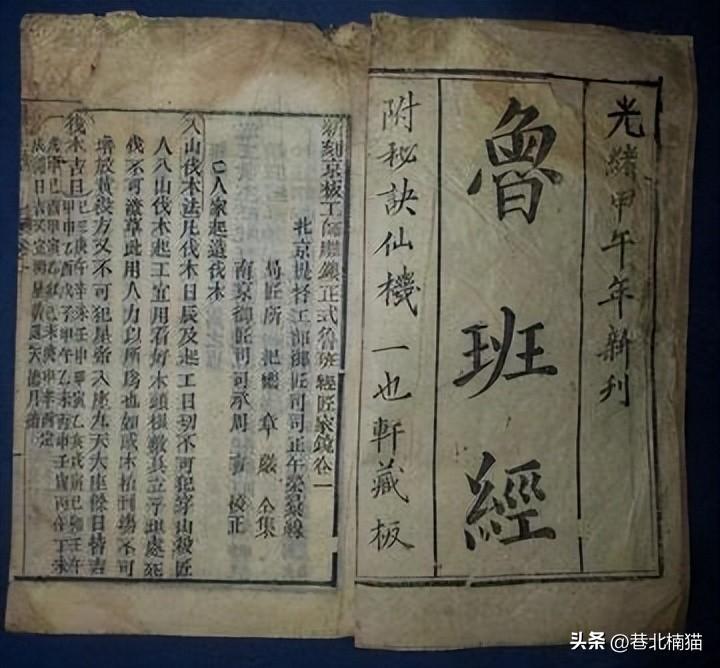 光緒甲午年新刊
魯班經
附秘訣仙機 一也軒藏板
新刻京板工師雕鏤正式魯班經匠家鏡卷一
北京提督工部御匠司司正午榮彙編
局匠所 把總 章嚴 仝集
南京御匠司司承周 言 校正
人家起造伐木
入山伐木法凡伐木日辰及起工日切不可犯穿山殺匠
人入山伐木起工宜用看好木頭根數具立平坦處斫
伐不可潦草此用人力以所為也如或木植到塲不可
堆放黃殺方又不可犯皇帝八座九天大座餘日皆吉
伐木吉日
頭条 @巷北楠猫